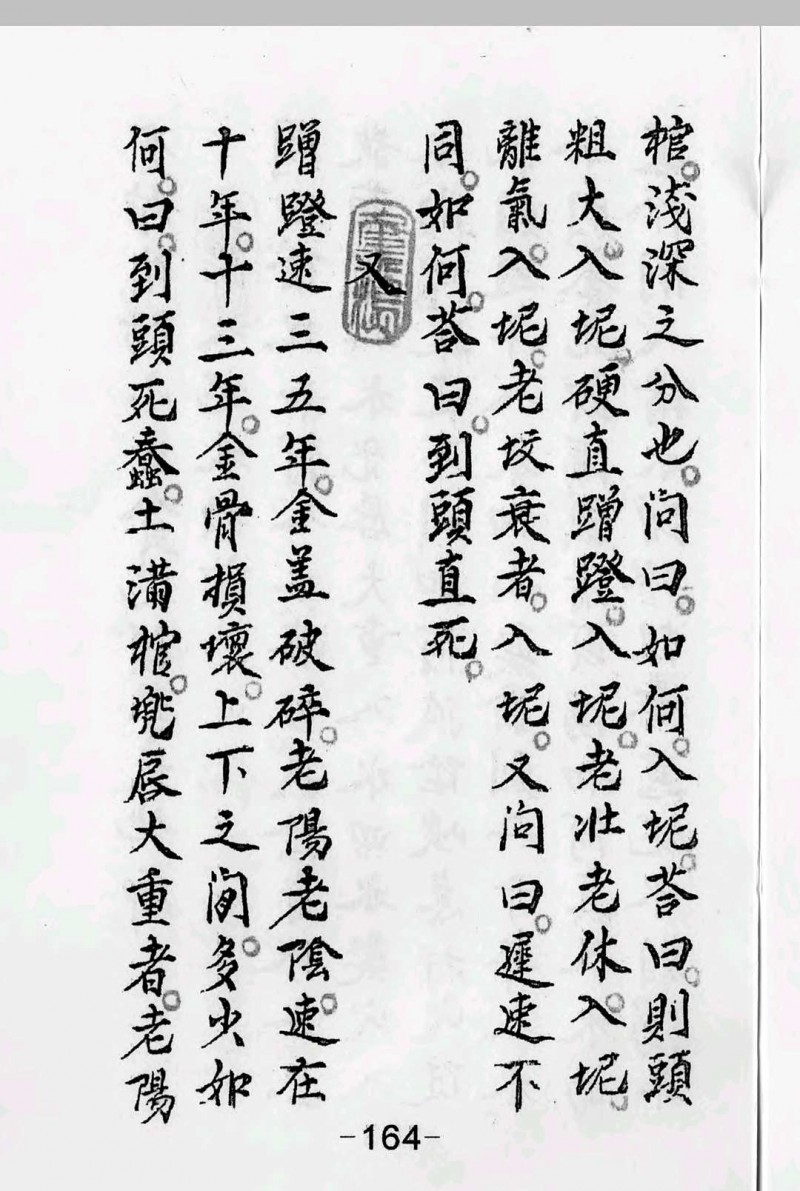 棺。淺深之分也。問曰。如何入坭。荅曰。則頭
粗大入坭。硬直蹭蹬。入坭。老壯老休入坭。
離氣。入坭。老坟衰者。入坭。又问曰。遲速不
同。如何。荅曰。到頭直死。
又
蹭蹬速三五年。金盖破碎。老陽老陰。速在
十年。十三年。金骨損壞。上下之间。多少如
何。曰。到頭死蠢。土满棺。兠唇大重者。老陽
-164-